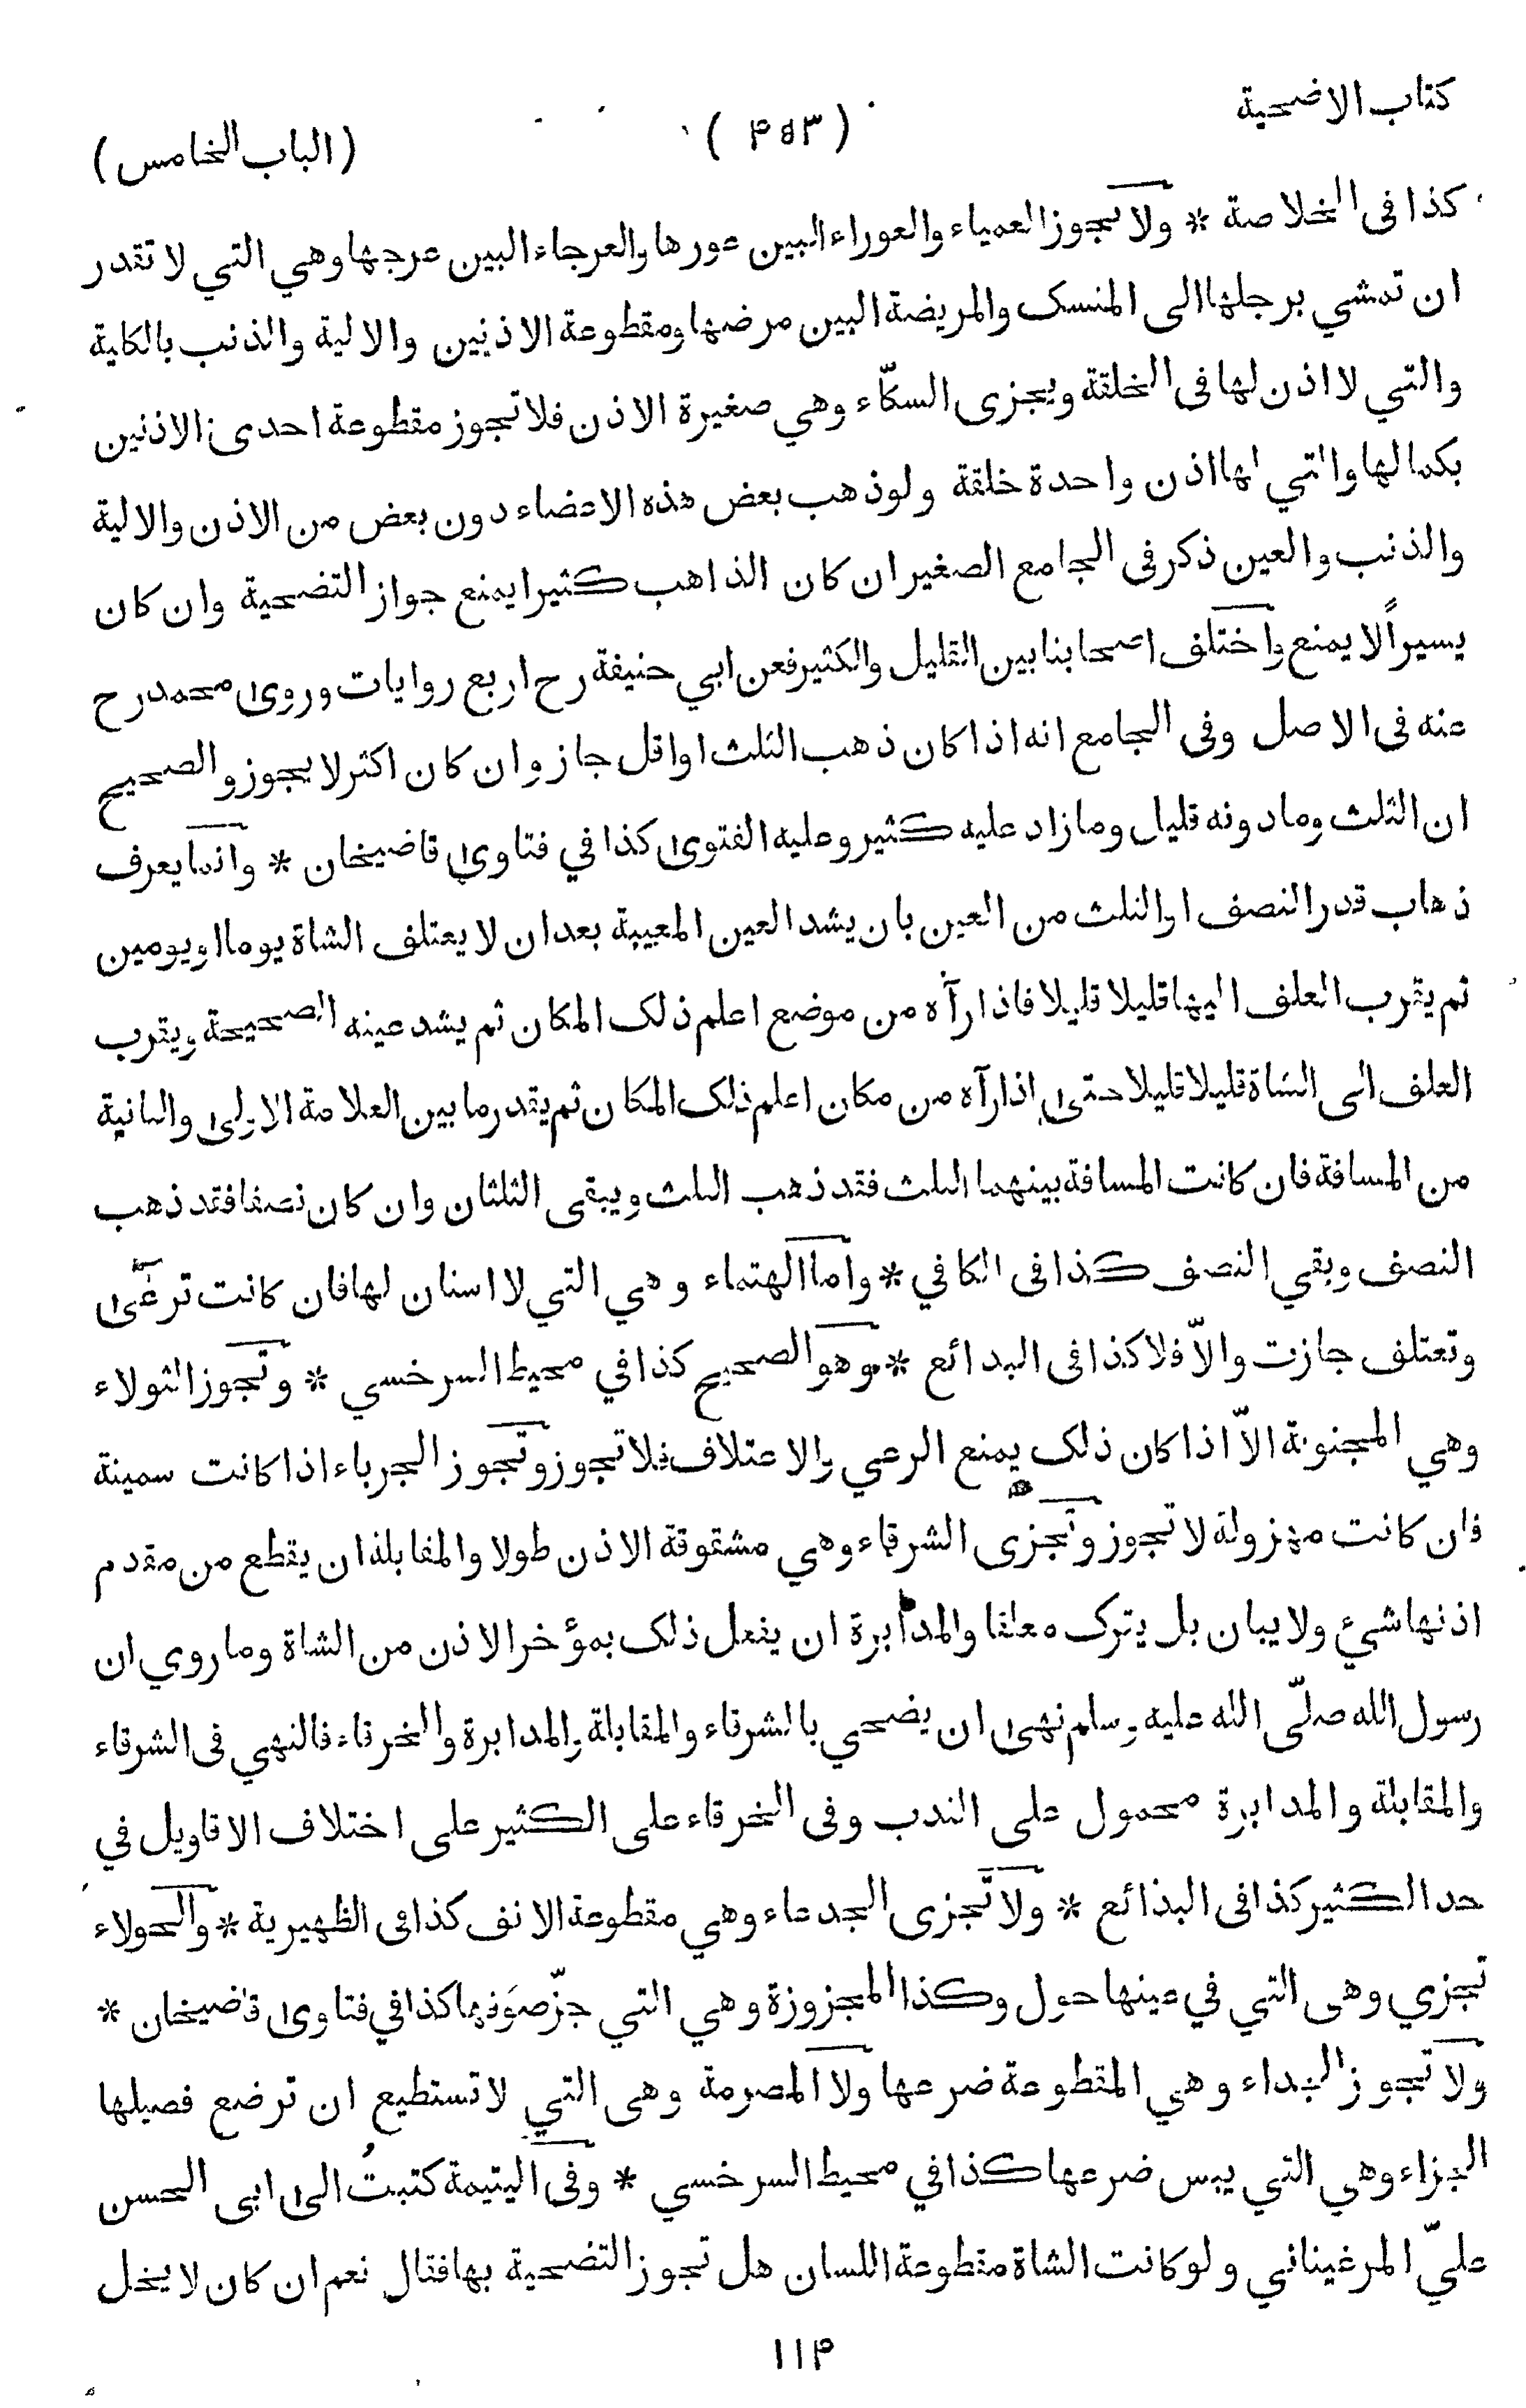 كتاب الاضحية
( ۴۵۳ )
( الباب الخامس )
كذا فى الخلاصة * ولا تجوز العمياء والعوراء البين عورها والعرجاء البين عرجها وهي التي لا تقدر
ان تمشي برجلها الى المنسك والمريضة البين مرضها ومقطوعة الاذنين والالية والذنب بالكلية
والتي لا اذن لها فى الخلقة ويجزى السكّاء وهي صغيرة الاذن فلا تجوز مقطوعة احدى الاذنين
بكمالها والتي لها اذن واحدة خلقة ولو ذهب بعض هذه الاعضاء دون بعض من الاذن والالية
والذنب والعين ذكر فى الجامع الصغير ان كان الذاهب كثيرا يمنع جواز التضحية وان كان
يسيراً لا يمنع واختلف اصحابنا بين القليل والكثير فعن ابي حنيفة رح اربع روايات وروى محمد رح
عنه فى الاصل وفى الجامع انه اذا كان ذهب الثلث او اقل جاز وان كان اكثر لا يجوز والصحيح
ان الثلث وما دونه قليل وما زاد عليه كثير وعليه الفتوى كذا في فتاوى قاضيخان * وانما يعرف
ذهاب قدر النصف او الثلث من العين بان يشد العين المعيبة بعد ان لا يعتلف الشاة يوما او يومين
ثم يقرب العلف اليها قليلا قليلا فاذا رآه من موضع اعلم ذلك المكان ثم يشد عينه الصحيحة ويقرب
العلف الى الشاة قليلا قليلا حتى اذا رآه من مكان اعلم ذلك المكان ثم يقدر ما بين العلامة الاولى والثانية
من المسافة فان كانت المسافة بينهما الثلث فقد ذهب الثلث ويبقى الثلثان وان كان نصفا فقد ذهب
النصف وبقي النصف كذا فى الكافي * واما الهتماء وهي التي لا اسنان لها فان كانت ترعى
وتعتلف جازت والاّ فلا كذا فى البدائع * وهو الصحيح كذا في محيط السرخسي * وتجوز الثولاء
وهي المجنونة الاّ اذا كان ذلك يمنع الرعي والاعتلاف فلا تجوز وتجوز الجرباء اذا كانت سمينة
فان كانت مهزولة لا تجوز وتجزى الشرقاء وهي مشقوقة الاذن طولا والمقابلة ان يقطع من مقدم
اذنها شيء ولا يبان بل يترك معلقا والمدابرة ان يفعل ذلك بمؤخر الاذن من الشاة وما روي ان
رسول الله صلّى الله عليه وسلم نهى ان يضحي بالشرقاء والمقابلة والمدابرة والخرقاء فالنهي فى الشرقاء
والمقابلة والمدابرة محمول على الندب وفى الخرقاء على الكثير على اختلاف الاقاويل في
حد الكثير كذا فى البدائع * ولا تجزى الجدعاء وهي مقطوعة الانف كذا فى الظهيرية * والحولاء
تجزي وهى التي في عينها حول وكذا المجزوزة وهي التي جزّ صوفها كذا في فتاوى قاضيخان *
ولا تجوز الجداء وهي المقطوعة ضرعها ولا المصرمة وهى التي لا تستطيع ان ترضع فصيلها
الجزاء وهي التي يبس ضرعها كذا في محيط السرخسي * وفى اليتيمة كتبتُ الى ابى الحسن
عليّ المرغيناني ولو كانت الشاة مقطوعة اللسان هل تجوز التضحية بها فقال نعم ان كان لا يخل
۱۱۴